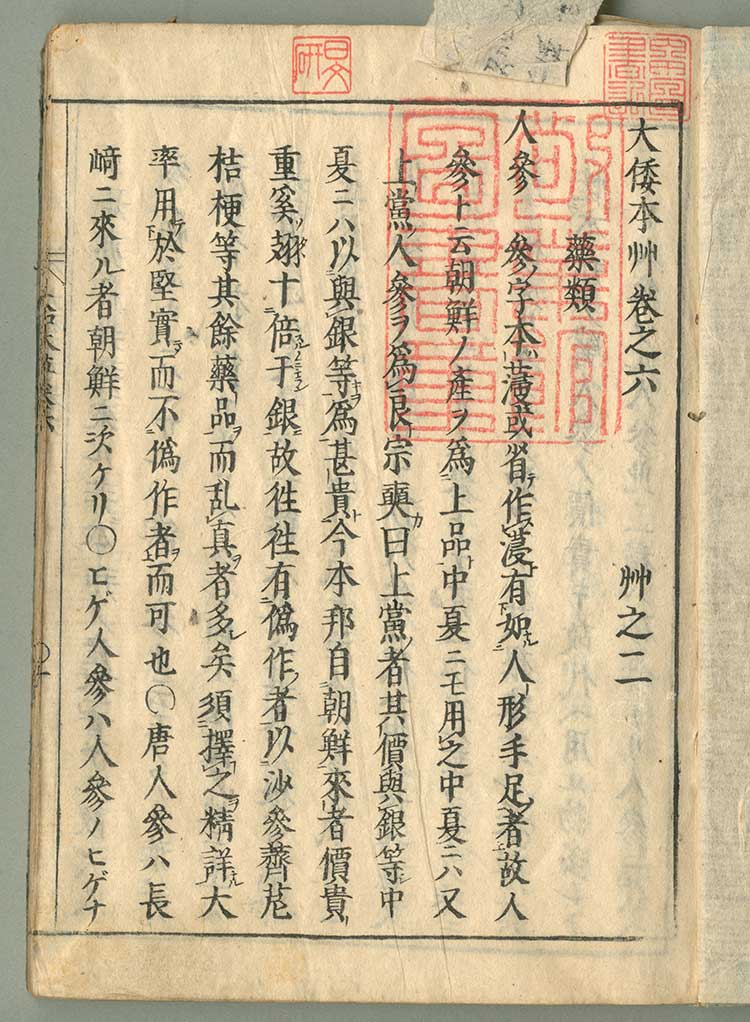 大倭本艸卷之六 艸之二
藥類
人參 參ノ字本ハ薓或省テ作ス蓡ト有下如ナル人ノ形手足ノ者上故人
參ト云朝鮮ノ產ヲ爲上品ト中夏ニモ用之中夏ニハ又
上黨ノ人參ヲ爲良ト宗奭カ曰上黨ノ者其價與銀等中
夏ニハ以與銀等キヲ爲甚貴ト今本邦自朝鮮來ル者價貴
重奚翅十倍于銀故徃徃有偽作ノ者以沙參薺苨
桔梗等其餘藥品ヲ而乱真ヲ者多シ矣須擇之ヲ精詳ナル大
率用テ於堅實ヲ而不偽作者ヲ而可也〇唐人參ハ長
﨑ニ來ル者朝鮮ニ次ケリ〇ヒゲ人參ハ人參ノヒゲナ